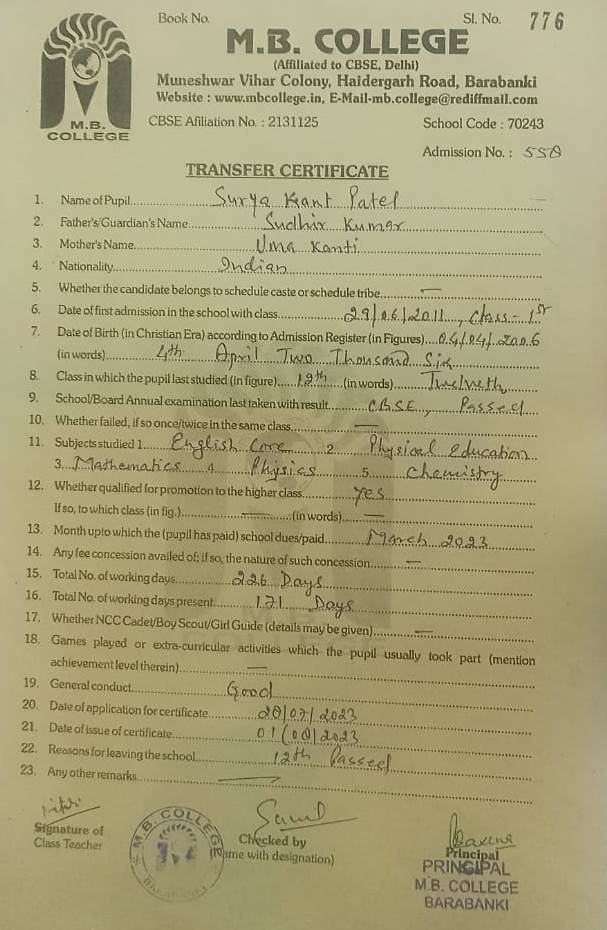 Book No.
Sl. No. 776
M.B. COLLEGE
(Affiliated to CBSE, Delhi)
Muneshwar Vihar Colony, Haidergarh Road, Barabanki
Website : www.mbcollege.in, E-Mail-mb.college@rediffmail.com
M.B.
COLLEGE
CBSE Afiliation No. : 2131125 School Code : 70243
Admission No. : 558
TRANSFER CERTIFICATE
1. Name of Pupil Surya Kant Patel
2. Father's/Guardian's Name Sudhir Kumar
3. Mother's Name Uma Kanti
4. Nationality Indian
5. Whether the candidate belongs to schedule caste or schedule tribe —
6. Date of first admission in the school with class 29/06/2011, Class - 1st
7. Date of Birth (in Christian Era) according to Admission Register (in Figures) 04/04/2006
(in words) 4th April Two Thousand Six
8. Class in which the pupil last studied (in figure) 12th (in words) Twelveth
9. School/Board Annual examination last taken with result CBSE, Passed
10. Whether failed, if so once/twice in the same class —
11. Subjects studied 1. English Core 2. Physical Education
3. Mathematics 4. Physics 5. Chemistry
12. Whether qualified for promotion to the higher class yes
If so, to which class (in fig.) — (in words) —
13. Month upto which the (pupil has paid) school dues/paid March 2023
14. Any fee concession availed of; if so, the nature of such concession —
15. Total No. of working days 226 Days
16. Total No. of working days present 171 Days
17. Whether NCC Cadet/Boy Scout/Girl Guide (details may be given) —
18. Games played or extra-curricular activities which the pupil usually took part (mention
achievement level therein) —
19. General conduct Good
20. Date of application for certificate 28/07/2023
21. Date of issue of certificate 01/08/2023
22. Reasons for leaving the school 12th Passed
23. Any other remarks —
Signature of
Class Teacher
M.B. COLLEGE
BARABANKI
Checked by
(Name with designation)
Principal
PRINCIPAL
M.B. COLLEGE
BARABANKI